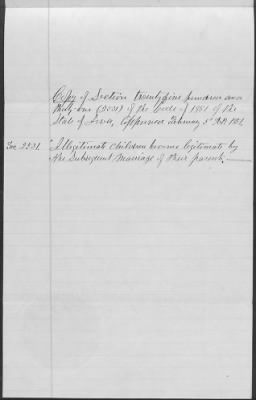 Copy of Section twenty nine hundred and
thirty one of the Code of 1851 of the
State of Iowa, Approved February 5th A.D. 1851
Sec. 2931. "Illegitimate children become legitimate by
the subsequent marriage of their parents.